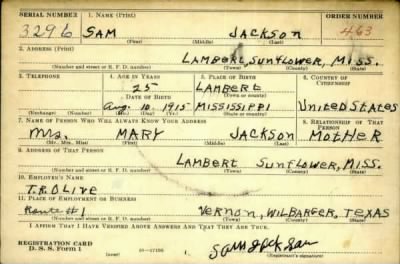 SERIAL NUMBER 1. NAME (Print) ORDER NUMBER
3296 SAM JACKSON 463
(First) (Middle) (Last)
2. ADDRESS (Print)
LAMBERT, SUNFLOWER, MISS.
(Number and street or R. F. D. number) (Town) (County) (State)
3. TELEPHONE 4. AGE IN YEARS 5. PLACE OF BIRTH 6. COUNTRY OF CITIZENSHIP
25 LAMBERT
DATE OF BIRTH (Town or county)
Aug. 10, 1915 MISSISSIPPI United States
(Exchange) (Number) (Mo.) (Day) (Yr.) (State or country)
7. NAME OF PERSON WHO WILL ALWAYS KNOW YOUR ADDRESS 8. RELATIONSHIP OF THAT PERSON
Mrs. MARY JACKSON MOTHER
(Mr., Mrs., Miss) (First) (Middle) (Last)
9. ADDRESS OF THAT PERSON
LAMBERT SUNFLOWER, MISS.
(Number and street or R. F. D. number) (Town) (County) (State)
10. EMPLOYER'S NAME
T.R. OLIVE
11. PLACE OF EMPLOYMENT OR BUSINESS
Route #1 VERNON, WILBARGER, TEXAS
(Number and street or R. F. D. number) (Town) (County) (State)
I AFFIRM THAT I HAVE VERIFIED ABOVE ANSWERS AND THAT THEY ARE TRUE.
REGISTRATION CARD
D. S. S. Form 1 Sam Jackson
(Registrant's signature)